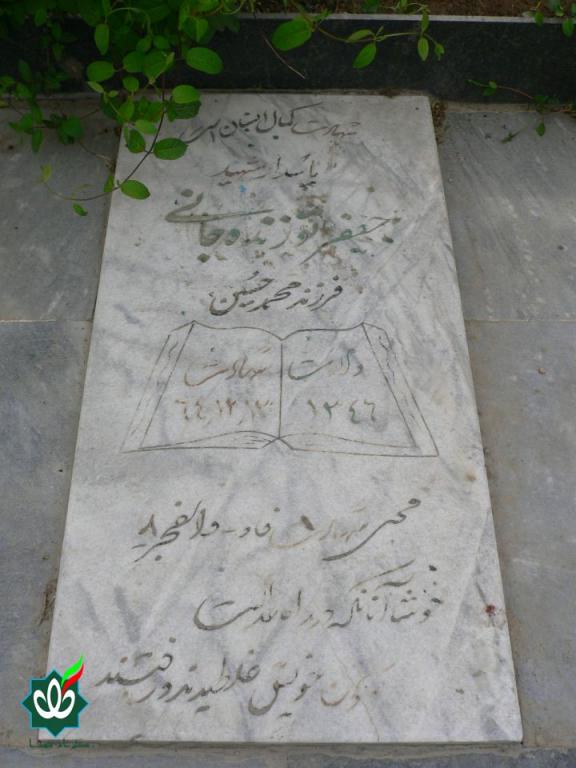 شهادت کمال انسان است
پاسدار شهید
جعفر نوزنده جانی
فرزند محمد حسین
ولادت شهادت
۱۳۴۶ ۶۴،۱۲،۱۳
محل شهادت فاو - والفجر ۸
خوشا آنانکه در راه عدالت
بخون خویش غلطیدند و رفتند